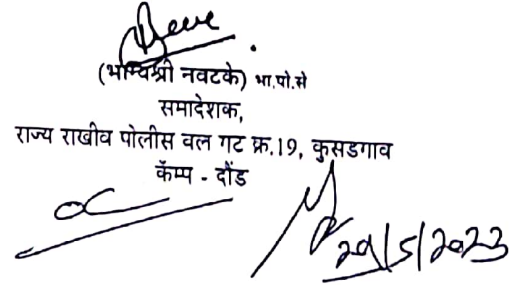 (भाग्यश्री नवटके) भा.पो.से
समादेशक,
राज्य राखीव पोलीस वल गट क्र.19, कुसडगाव
कॅम्प - दौंड
29/5/2023